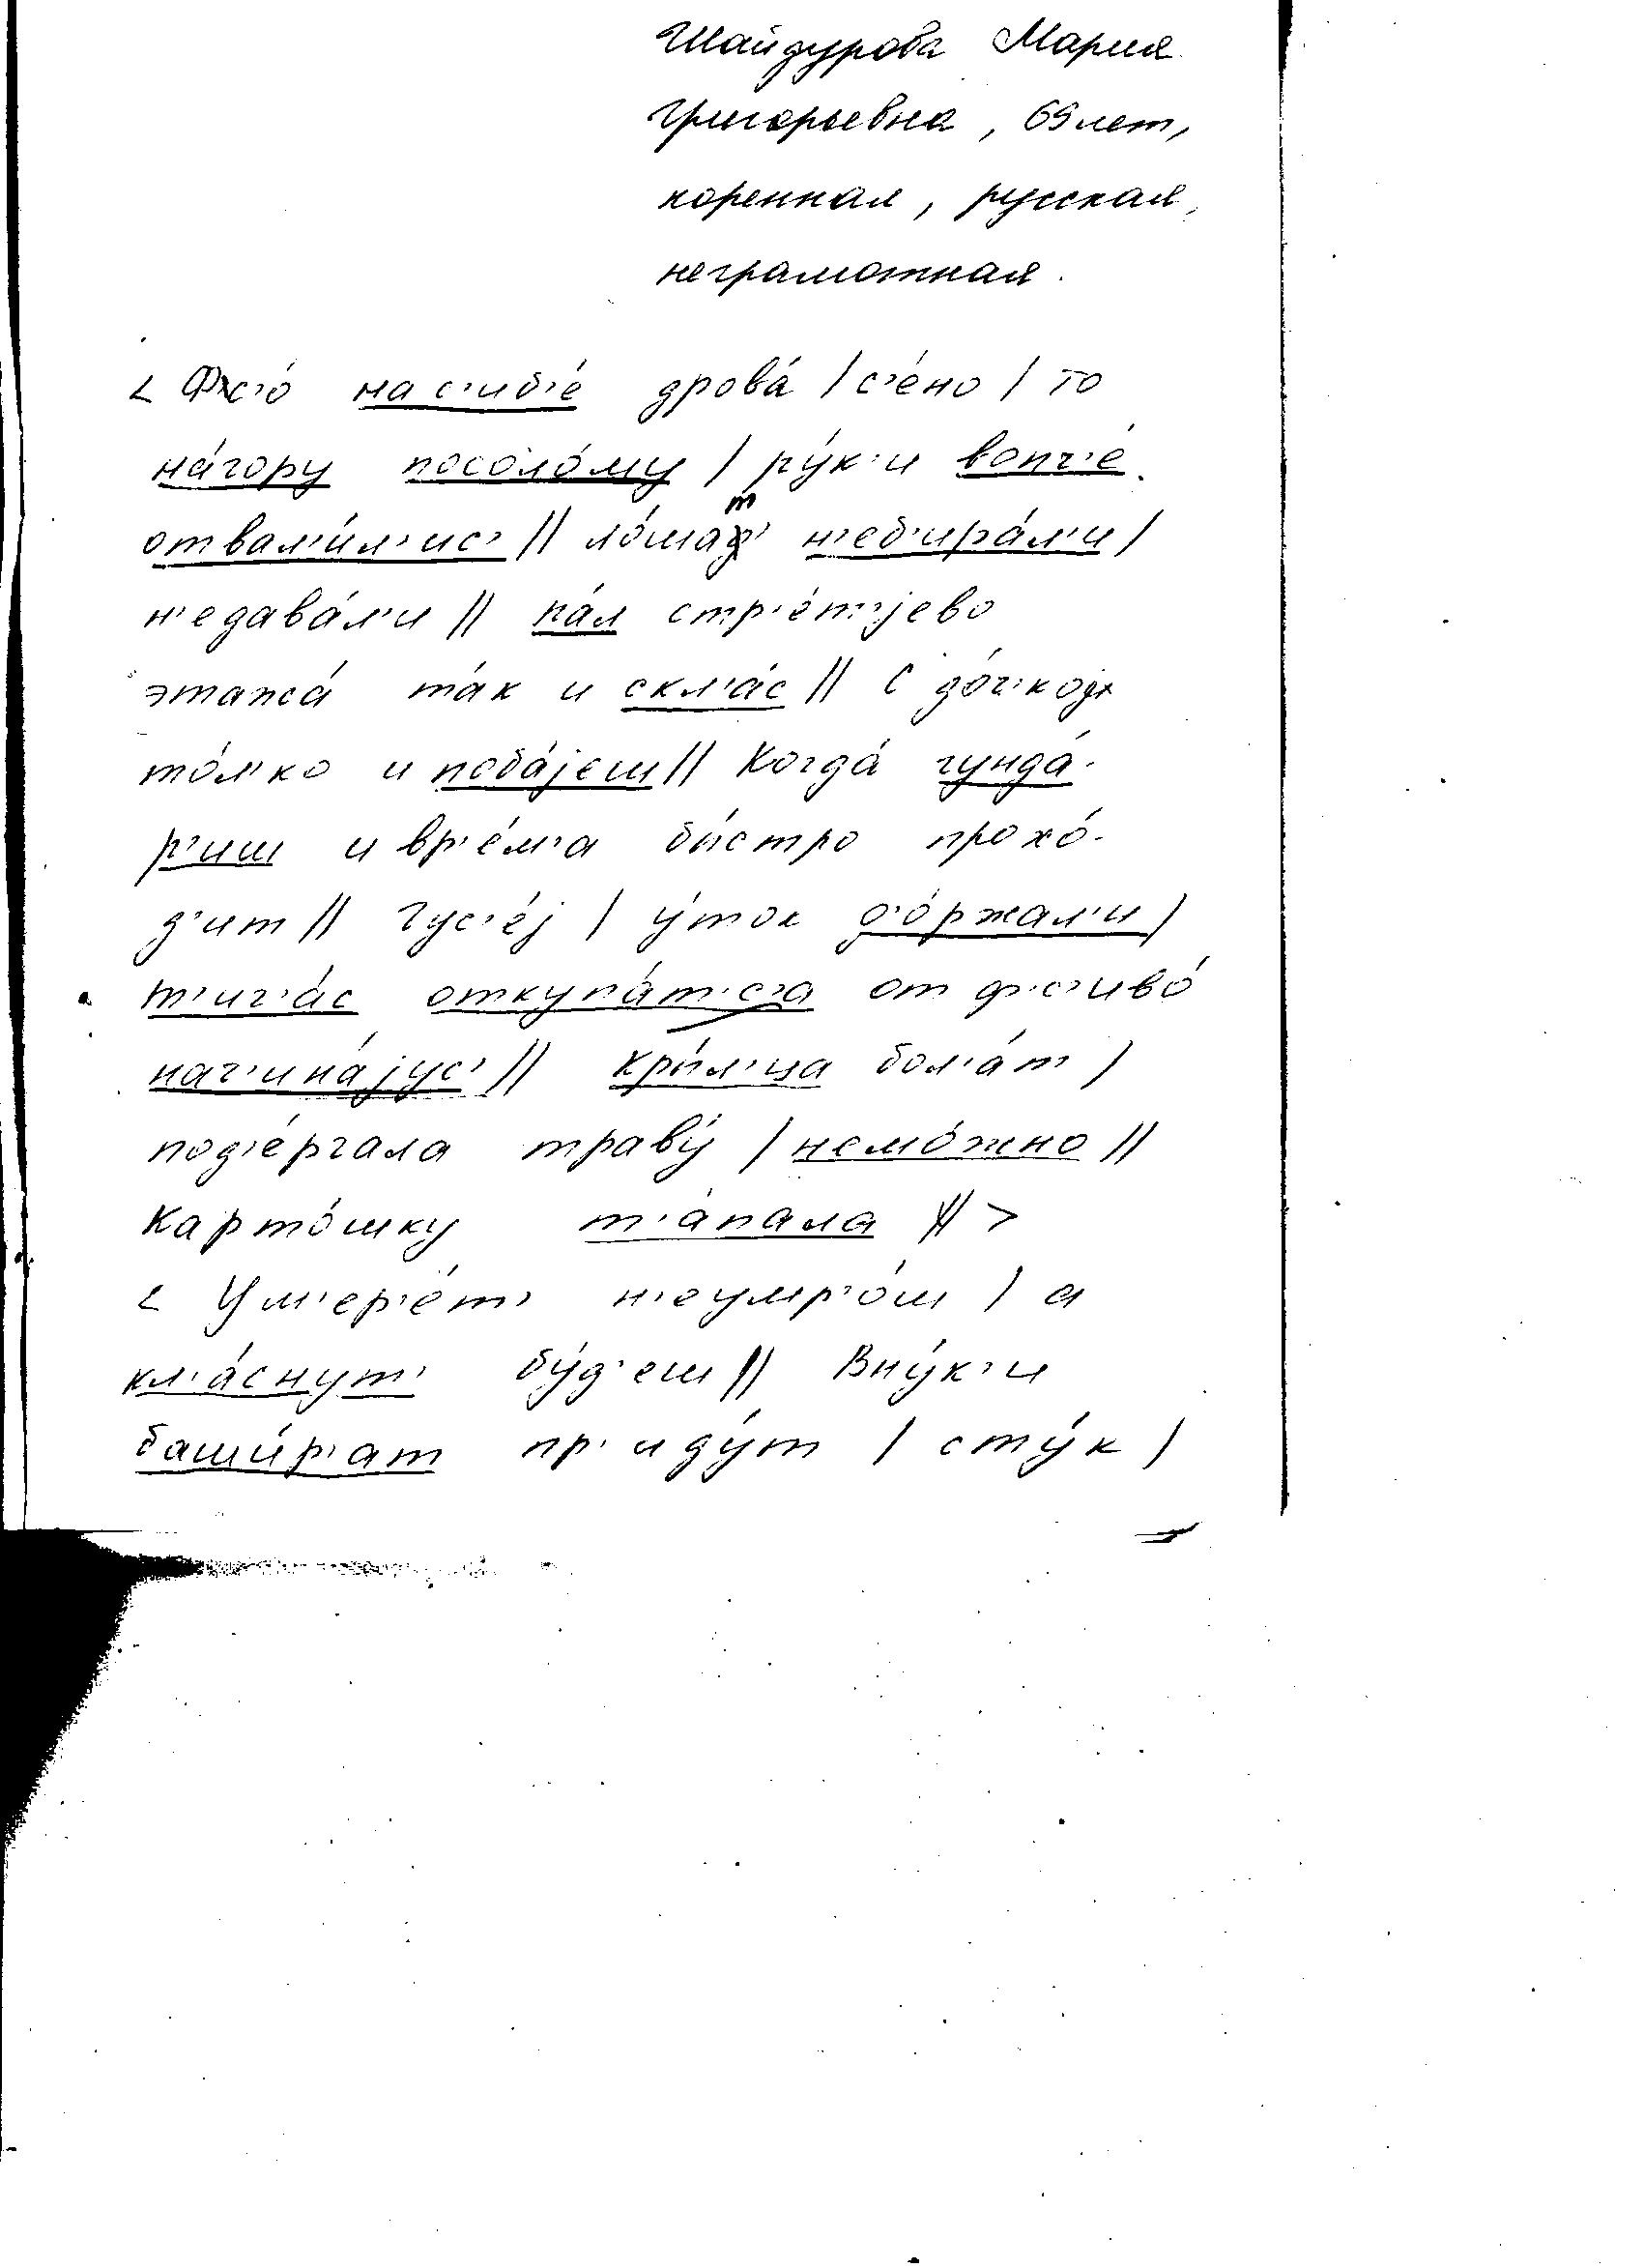 Шайдурова Мария
Григорьевна, 69 лет,
коренная, русская,
неграмотная.
< Фс'о́ на с'иб'е́ дрова́ / с'е́но / то
на́гору посоло́му / ру́к'и вопч'е́
отвал'и́л'ис' // ло́шат' н'еб'ира́л'и /
н'едава́л'и // па́л стр'е́т'јево
этажа́ та́к и скл'а́с // С до́ч'кој
то́л'ко и поба́јеш // Когда́ гунда́-
р'иш и вр'е́м'а бы́стро прохо́-
д'ит // Гус'е́ј / у́ток д'о́ржал'и /
т'ич'а́с откупа́т'с'а от ф'с'иво́
нач'ина́јус' // кры́л'ца бол'а́т' /
под'е́ргала траву́ / немо́жно //
Карто́шку т'а́пала // >
< Ум'ер'е́т' н'еумр'о́ш / а
кл'а́снут' бу́д'еш // Вну́к'и
башы́р'ат пр'иду́т / сту́к /